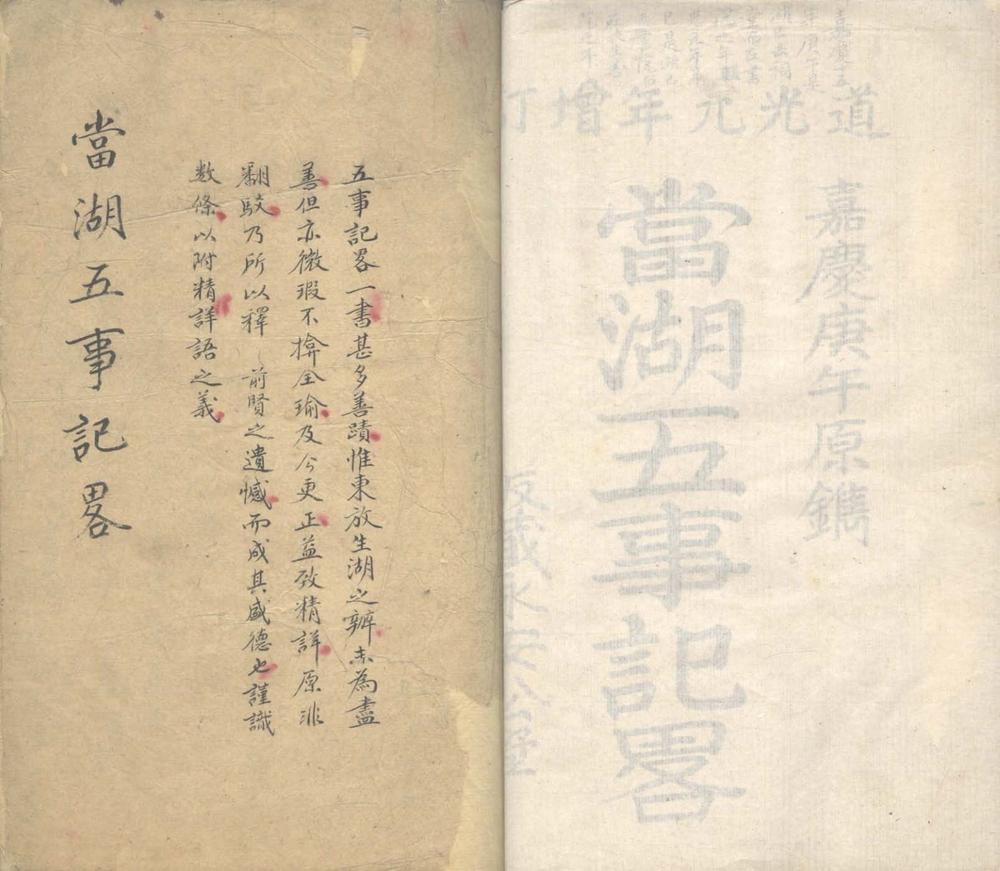 道光元年增訂
嘉慶庚午原鐫
當湖五事記畧
板藏永安公堂
五事記畧一書甚多善蹟惟東放生湖之辨未為盡
善但亦微瑕不揜全瑜及今更正益致精詳原非
翻駮乃所以釋 前賢之遺憾而成其盛德也謹識
数條以附精詳語之義
當湖五事記畧